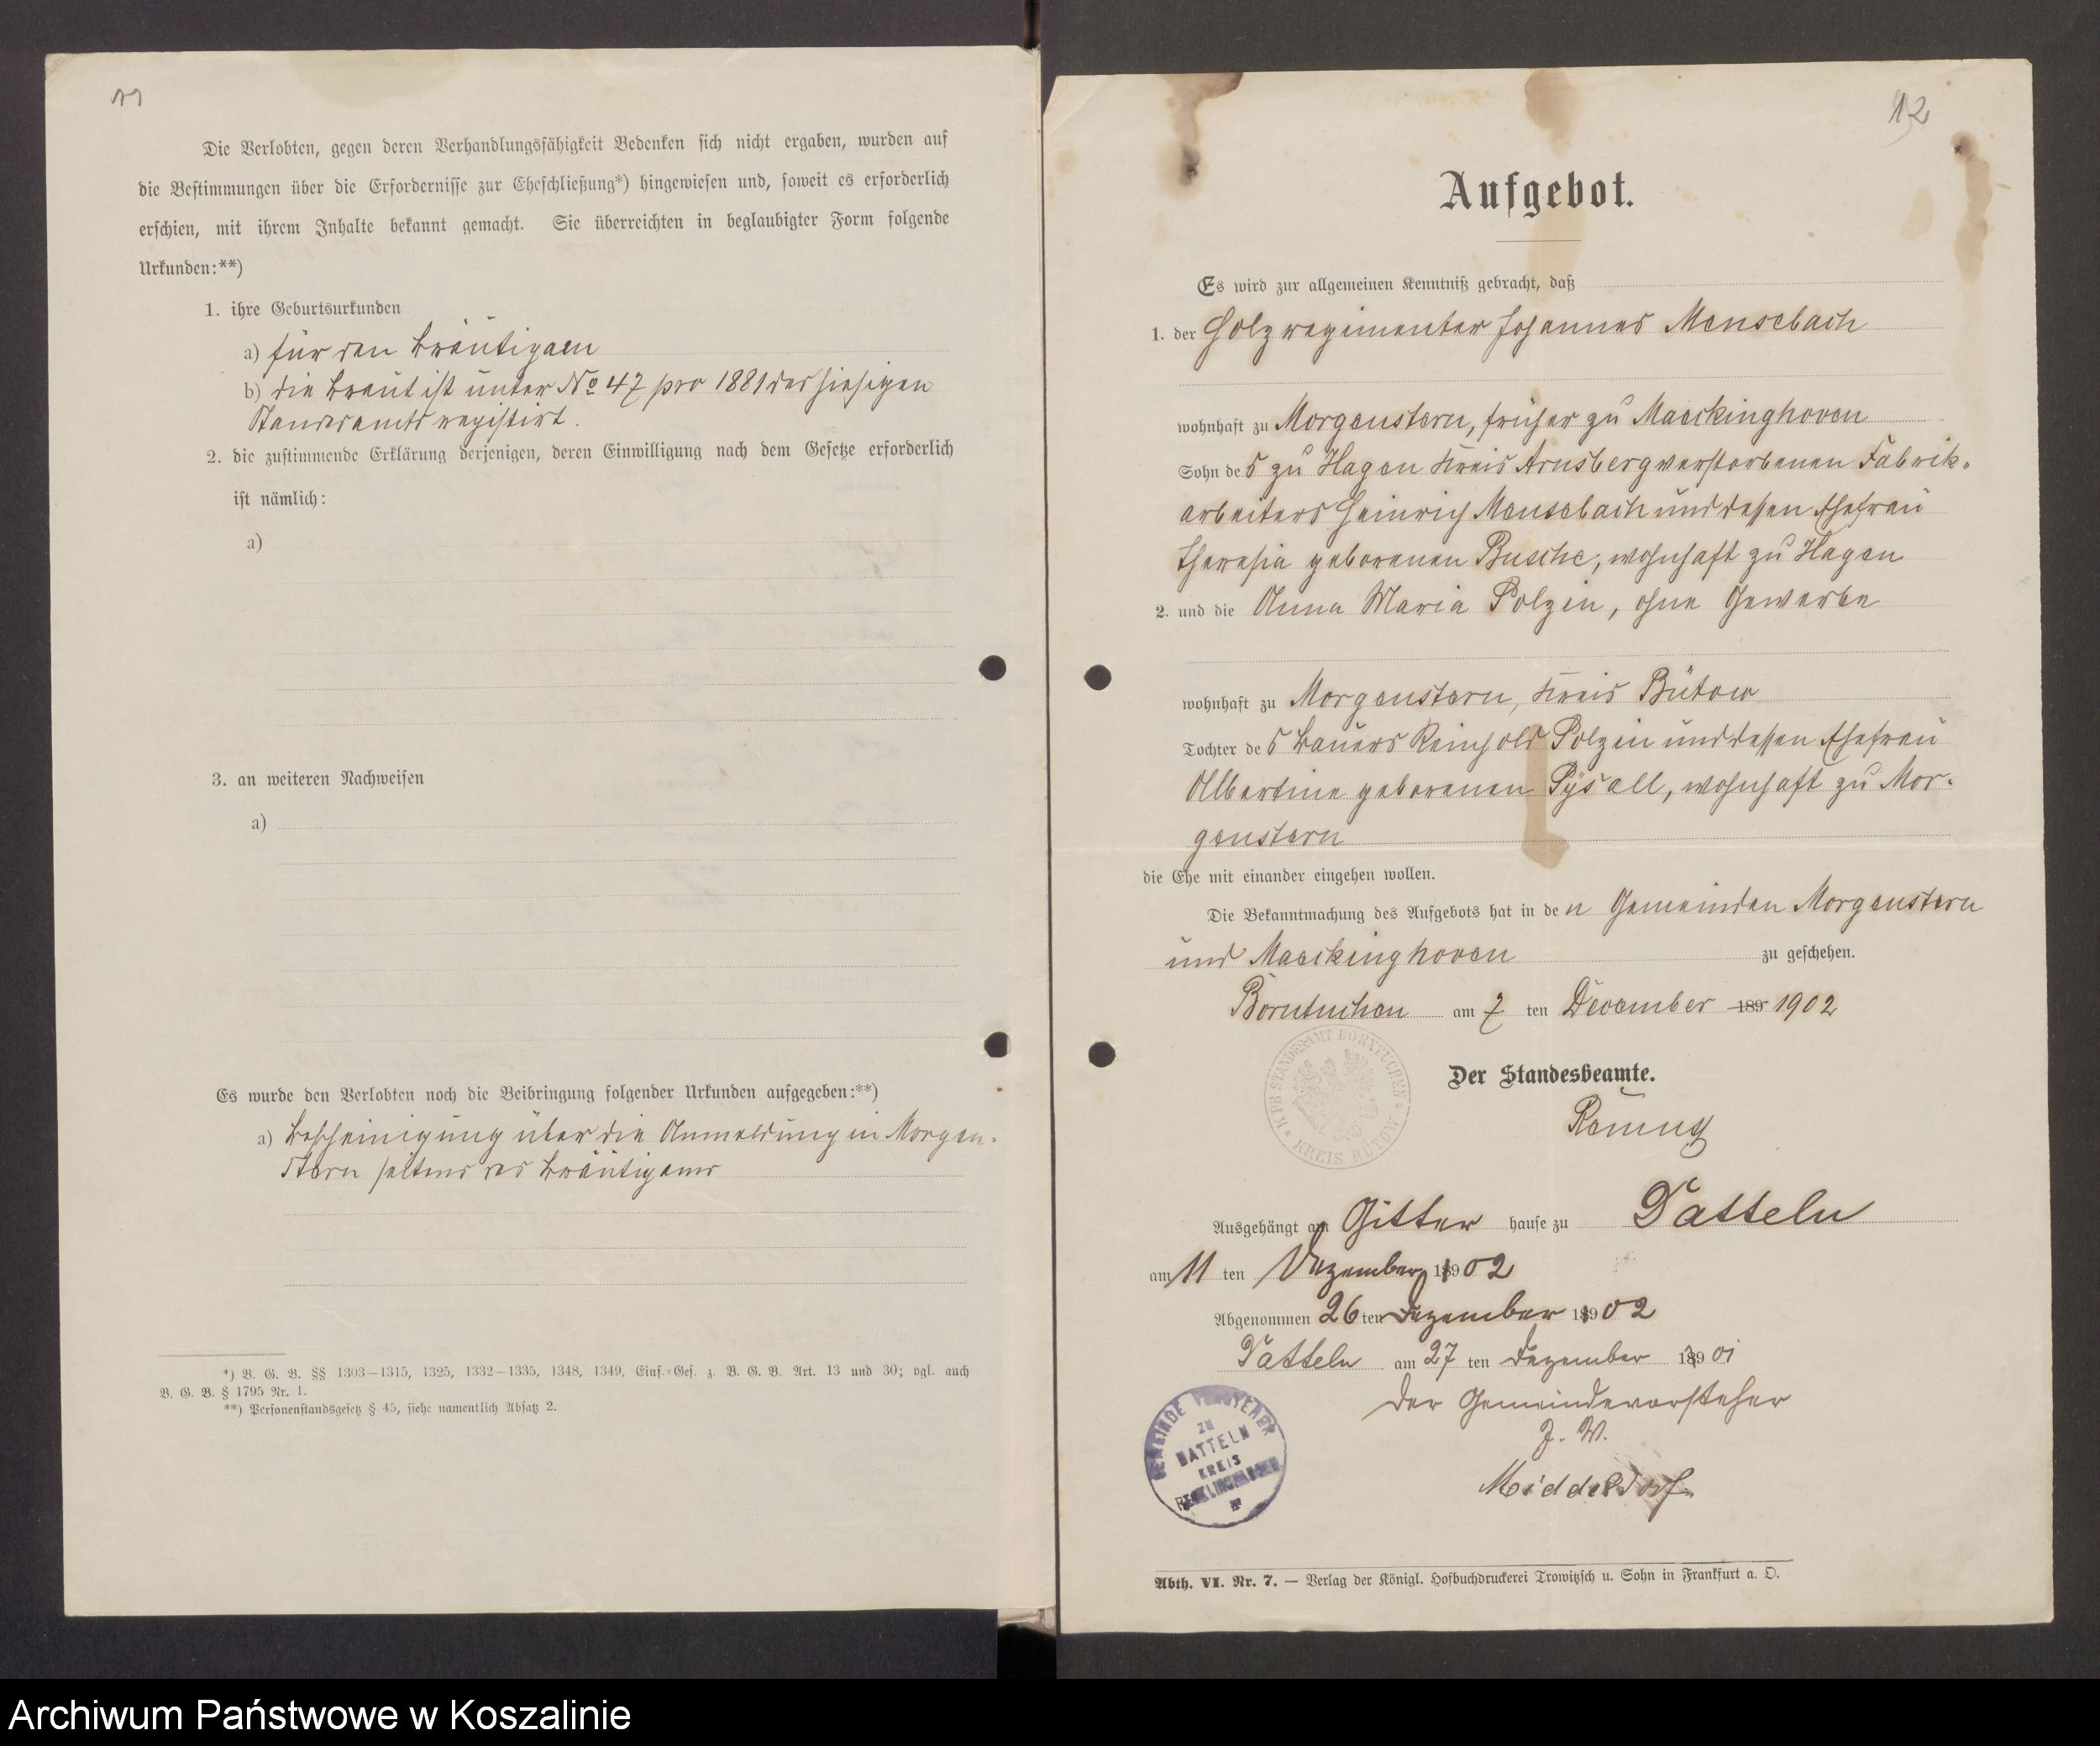 11
Die Verlobten, gegen deren Verhandlungsfähigkeit Bedenken sich nicht ergaben, wurden auf
die Bestimmungen über die Erfordernisse zur Eheschließung*) hingewiesen und, soweit es erforderlich
erschien, mit ihrem Inhalte bekannt gemacht. Sie überreichten in beglaubigter Form folgende
Urkunden:**)
1. ihre Geburtsurkunden
a) für den Bräutigam
b) die Braut ist unter No 47 pro 1881 des hiesigen
Standesamts registirt.
2. die zustimmende Erklärung derjenigen, deren Einwilligung nach dem Gesetze erforderlich
ist nämlich:
a)
3. an weiteren Nachweisen
a)
Es wurde den Verlobten noch die Beibringung folgender Urkunden aufgegeben:**)
a) Bescheinigung über die Anmeldung in Morgen-
stern seitens des Bräutigams
*) B. G. B. §§ 1303–1315, 1325, 1332–1335, 1348, 1349, Einf.-Ges. z. B. G. B. Art. 13 und 30; vgl. auch
B. G. B. § 1795 Nr. 1.
**) Personenstandsgesetz § 45, siehe namentlich Absatz 2.
12
Aufgebot.
Es wird zur allgemeinen Kenntniß gebracht, daß
1. der Holzregimenter Johannes Mensebach
wohnhaft zu Morgenstern, früher zu Maeckinghoven
Sohn des zu Hagen Kreis Arnsberg verstorbenen Fabrik-
arbeiters Heinrich Mensebach und dessen Ehefrau
Theresia geborenen Busche, wohnhaft zu Hagen
2. und die Anna Maria Polzin, ohne Gewerbe
wohnhaft zu Morgenstern, Kreis Bütow
Tochter des Bauers Reinhold Polzin und dessen Ehefrau
Albertine geborenen Pysall, wohnhaft zu Mor-
genstern
die Ehe mit einander eingehen wollen.
Die Bekanntmachung des Aufgebots hat in den Gemeinden Morgenstern
und Maeckinghoven zu geschehen.
Borntuchen am 7 ten December 189 1902
KPR STANDESAMT BORNTUCHEN * KREIS BÜTOW *
Der Standesbeamte.
Ausgehängt am Gitter hause zu Datteln
am 11 ten Dezember 1902
Abgenommen 26 ten Dezember 1902
Datteln am 27 ten Dezember 1890 01
Der Gemeindevorsteher
J. V.
Middeldorf
GEMEINDE VORSTEHER
ZU
DATTELN
KREIS
RECKLINGHAUSEN
Abth. VI. Nr. 7. — Verlag der Königl. Hofbuchdruckerei Trowitzsch u. Sohn in Frankfurt a. O.
Archiwum Państwowe w Koszalinie